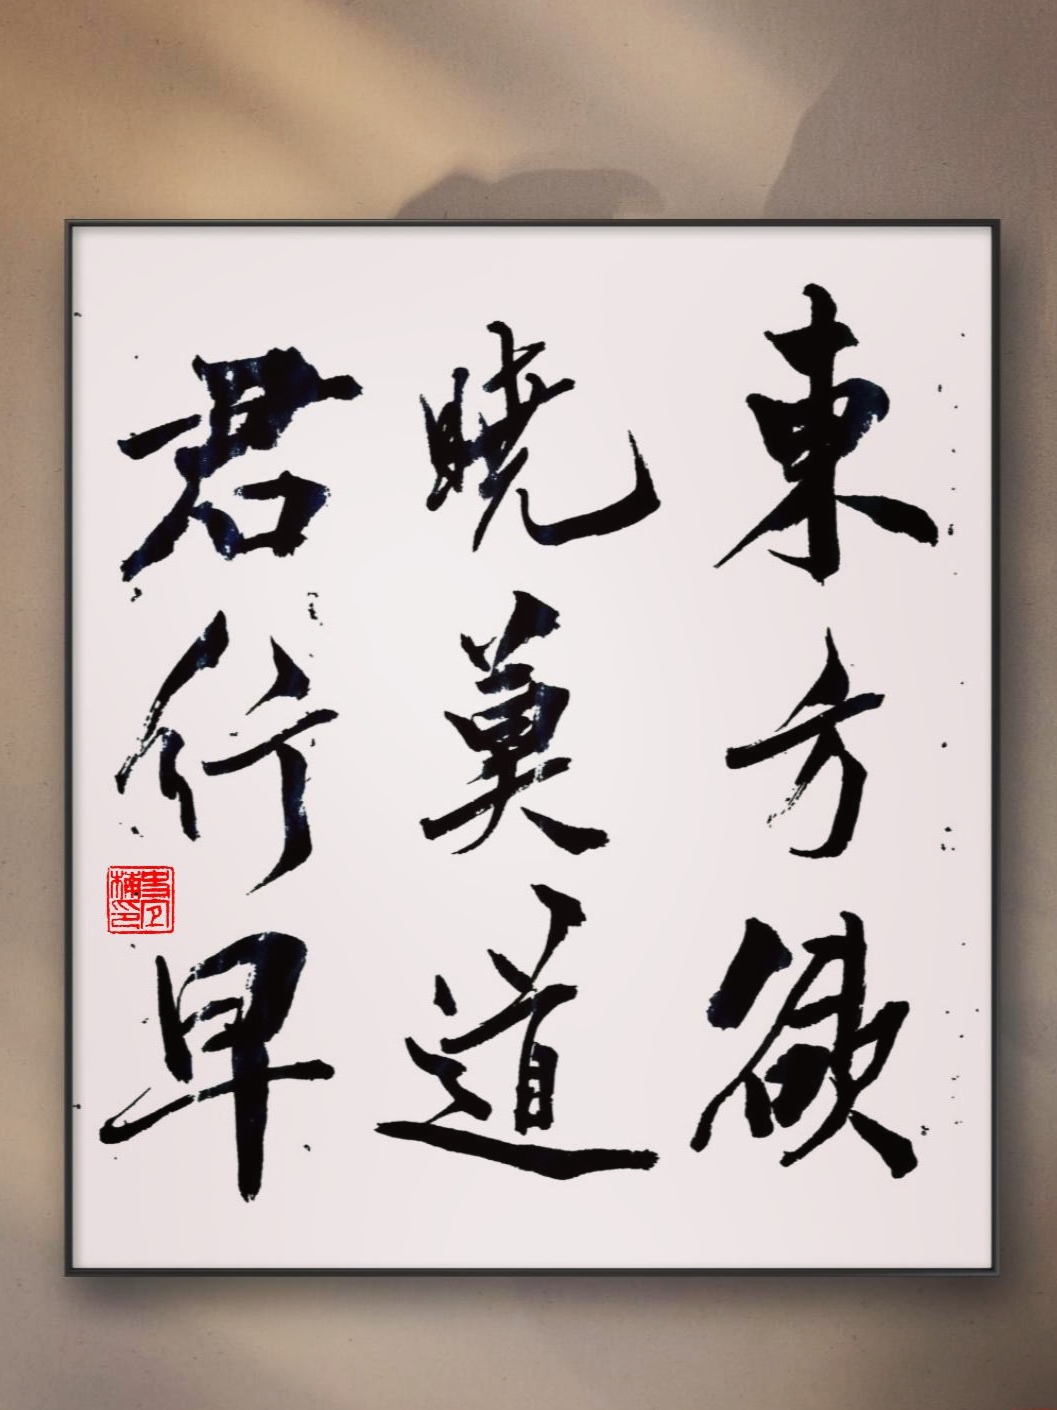 東方欲
曉莫道
君行早